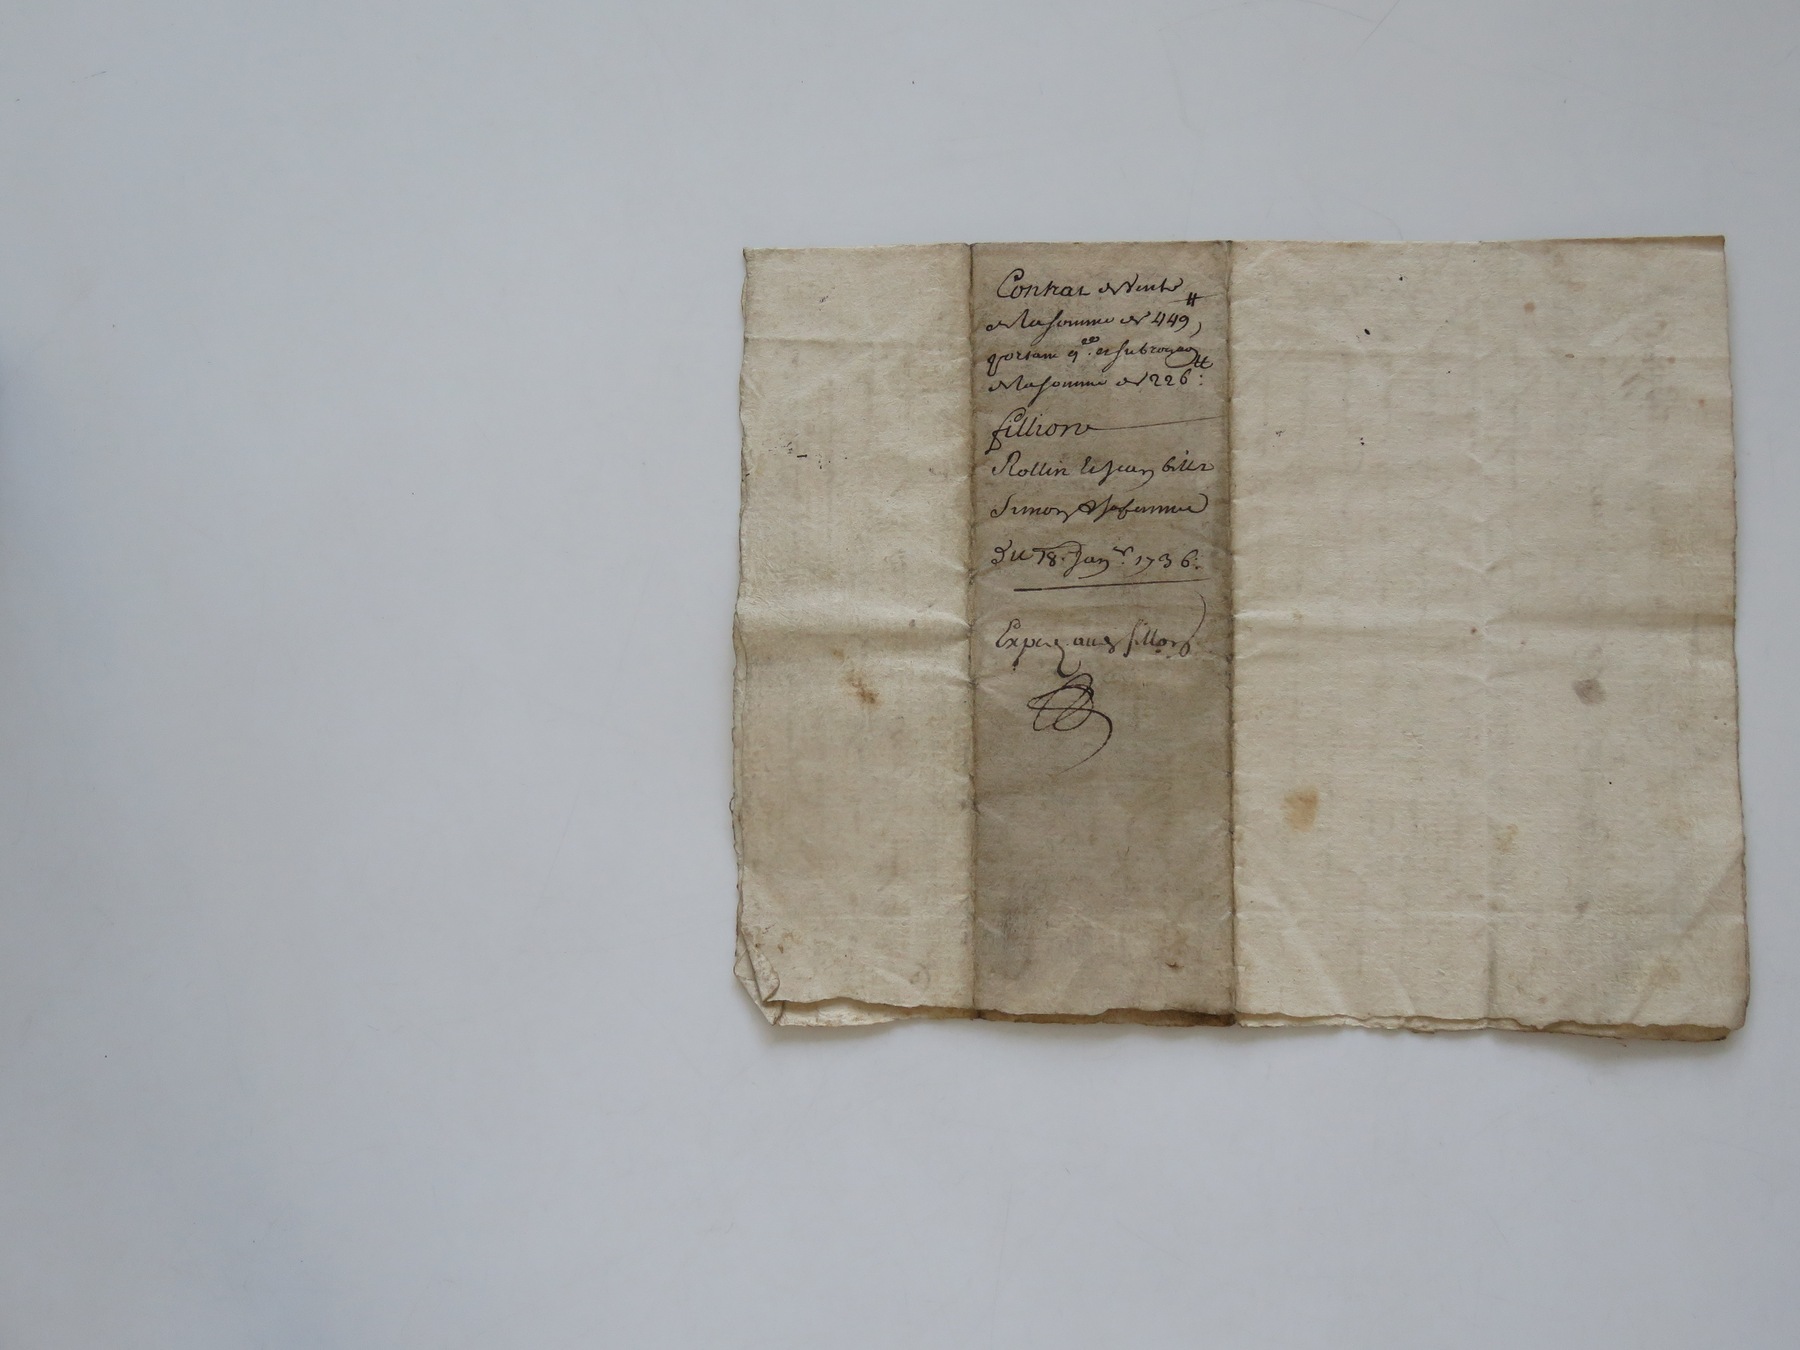 Contrat de Vente
de la somme de 449 ₶,
portant q.ce et subrogaon
de la somme de 226 ₶ :
fillion
Rollin et Jean
Simon & sa femme
Du 18. Janer. 1736.
Exp.